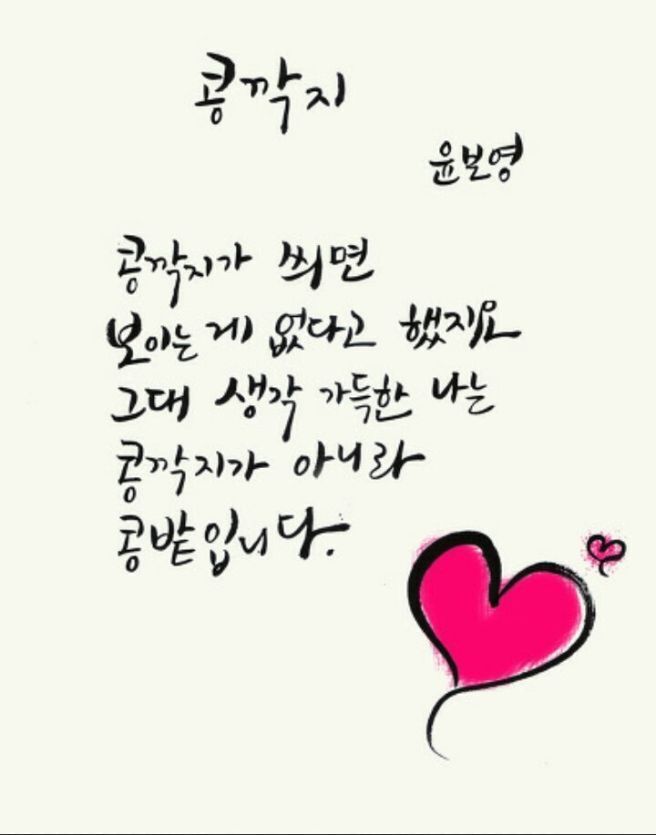 콩깍지
윤보영
콩깍지가 씌면
보이는 게 없다고 했지요
그대 생각 가득한 나는
콩깍지가 아니라
콩밭입니다.